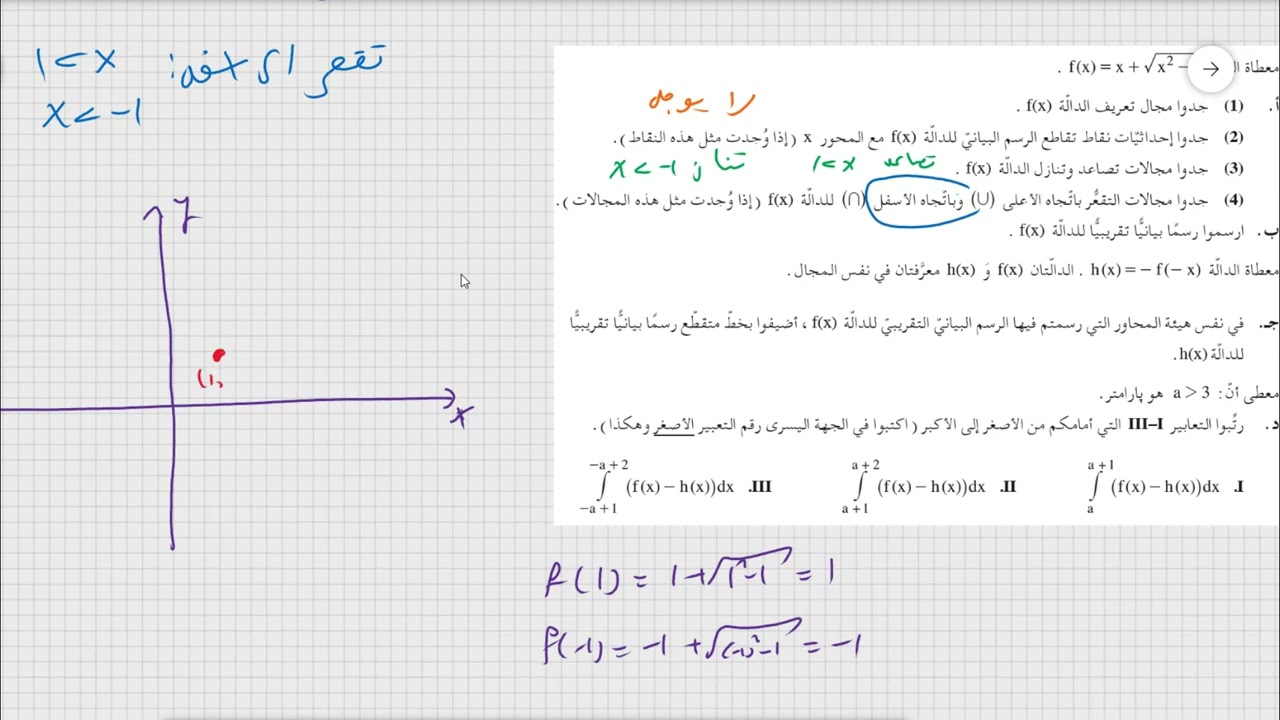 تقعر لأسفل: 1 < x
x < -1
معطاة f(x) = x + √x² −
لا يوجد
أ. (1) جدوا مجال تعريف الدالّة f(x) .
(2) جدوا إحداثيّات نقاط تقاطع الرسم البيانيّ للدالّة f(x) مع المحور x ( إذا وُجدت مثل هذه النقاط ) .
تصاعد 1 < x تنازل x < -1
(3) جدوا مجالات تصاعد وتنازل الدالّة f(x) .
(4) جدوا مجالات التقعُّر باتّجاه الأعلى (∪) وَباتّجاه الأسفل (∩) للدالّة f(x) ( إذا وُجدت مثل هذه المجالات ) .
ب. ارسموا رسمًا بيانيًّا تقريبيًّا للدالّة f(x) .
معطاة الدالّة h(x) = − f(− x) . الدالّتان f(x) وَ h(x) معرَّفتان في نفس المجال .
جـ. في نفس هيئة المحاور التي رسمتم فيها الرسم البيانيّ التقريبيّ للدالّة f(x) ، أضيفوا بخطّ متقطّع رسمًا بيانيًّا تقريبيًّا
للدالّة h(x) .
معطى أنّ : a > 3 هو پارامتر .
د. رتِّبوا التعابير I–III التي أمامكم من الأصغر إلى الأكبر ( اكتبوا في الجهة اليسرى رقم التعبير الأصغر وهكذا ) .
I. ∫ₐᵃ⁺¹ (f(x) − h(x))dx II. ∫ₐ₊₁ᵃ⁺² (f(x) − h(x))dx III. ∫₋ₐ₊₁⁻ᵃ⁺² (f(x) − h(x))dx
y
(1,
x
f(1) = 1 + √1² - 1 = 1
f(-1) = -1 + √(-1)² - 1 = -1